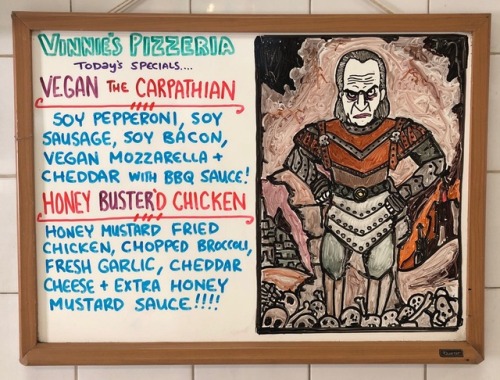 VINNIE'S PIZZERIA
TODAY'S SPECIALS....
VEGAN THE CARPATHIAN
SOY PEPPERONI, SOY
SAUSAGE, SOY BACON,
VEGAN MOZZARELLA +
CHEDDAR WITH BBQ SAUCE!
HONEY BUSTER'D CHICKEN
HONEY MUSTARD FRIED
CHICKEN, CHOPPED BROCCOLI,
FRESH GARLIC, CHEDDAR
CHEESE + EXTRA HONEY
MUSTARD SAUCE!!!!